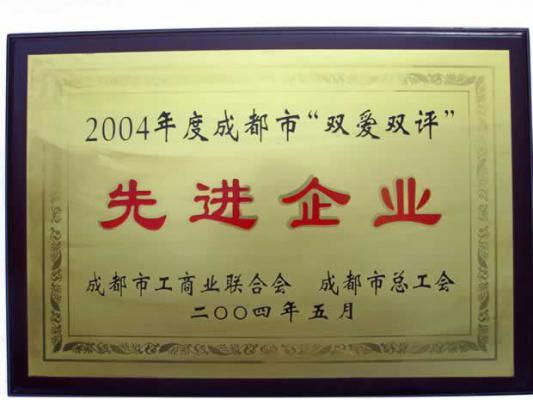 2004年度成都市“双爱双评”
先进企业
成都市工商业联合会 成都市总工会
二〇〇四年五月